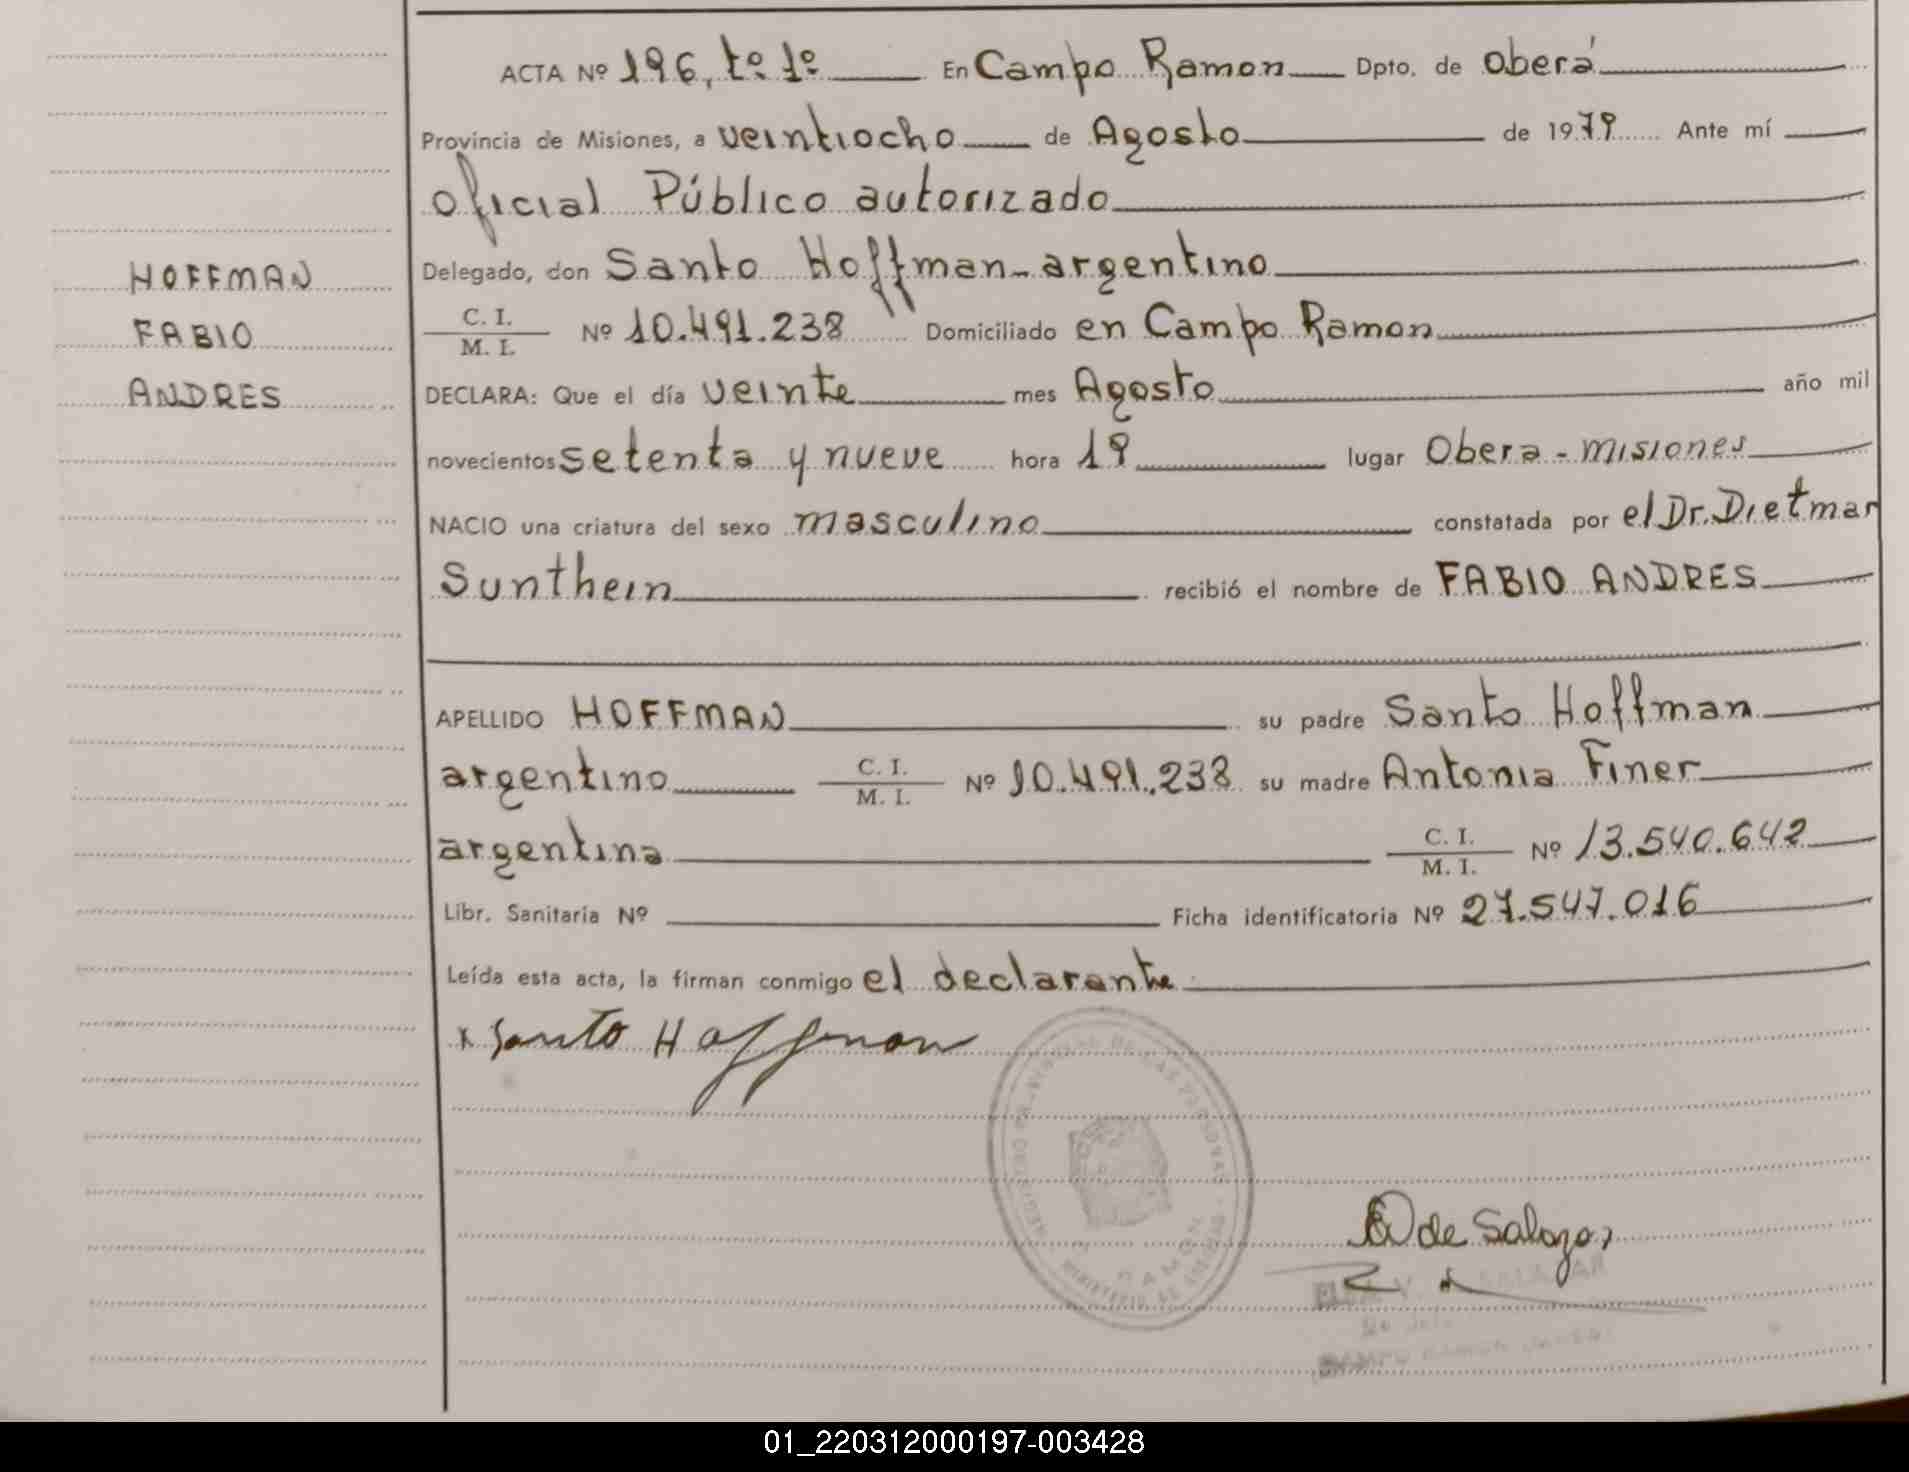 ACTA Nº 196, tº 1º En Campo Ramon Dpto. de Oberá
Provincia de Misiones, a veintiocho de Agosto de 1979 Ante mí
Oficial Público autorizado
Delegado, don Santo Hoffman - argentino
C. I.
M. I.
Nº 10.491.238 Domiciliado en Campo Ramon
DECLARA: Que el día veinte mes Agosto año mil
novecientos setenta y nueve hora 19 lugar Obera - misiones
NACIO una criatura del sexo masculino constatada por el Dr. Dietmar
Sunthein recibió el nombre de FABIO ANDRES
APELLIDO HOFFMAN su padre Santo Hoffman
argentino C. I. M. I. Nº 10.491.238 su madre Antonia Finer
argentina C. I. M. I. Nº 13.540.642
Libr. Sanitaria Nº Ficha identificatoria Nº 27.547.016
Leída esta acta, la firman conmigo el declarante
x Santo Hoffman
HOFFMAN
FABIO
ANDRES
de Salazar
SALAZAR
CAMPO RAMON
01_220312000197-003428